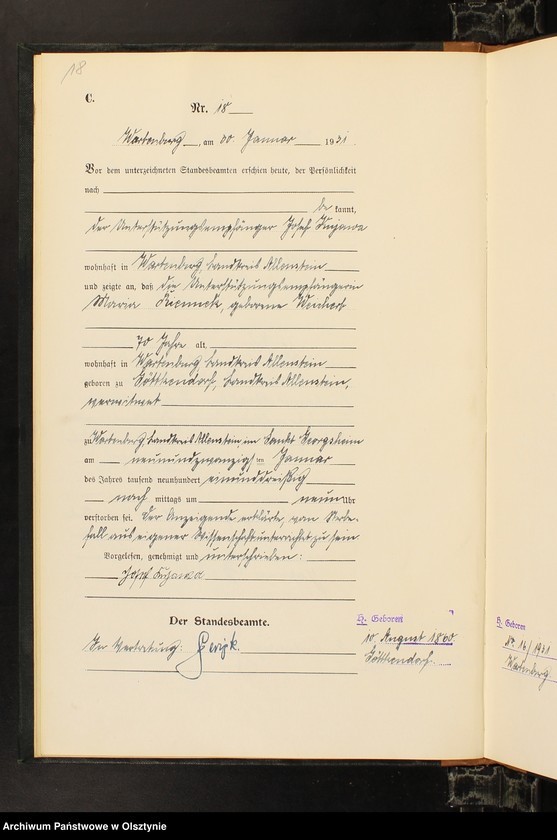 18
C.
Nr. 18
Wartenburg, am 30. Januar 1931.
Vor dem unterzeichneten Standesbeamten erschien heute, der Persönlichkeit
nach
be kannt,
der Unterstützungsempfänger Josef Kujawa
wohnhaft in Wartenburg, Landkreis Allenstein
und zeigte an, daß die Unterstützungsempfängerin
Maria geborene
70 Jahre alt,
wohnhaft in Wartenburg, Landkreis Allenstein
geboren zu Göttkendorf, Landkreis Allenstein,
verwitwet
zu Wartenburg Landkreis Allenstein im Sankt Georgsheim
am neunundzwanzigsten Januar
des Jahres tausend neunhundert einunddreißig
nach mittags um neun Uhr
verstorben sei. Der Anzeigende erklärte, vom Sterbe-
fall aus eigener Wissenschaft unterrichtet zu sein
Vorgelesen, genehmigt und unterschrieben:
Josef Kujawa
Der Standesbeamte.
In Vertretung:
H. Geboren
10. August 1860
Göttkendorf
H. Geboren
Wartenburg
Archiwum Państwowe w Olsztynie